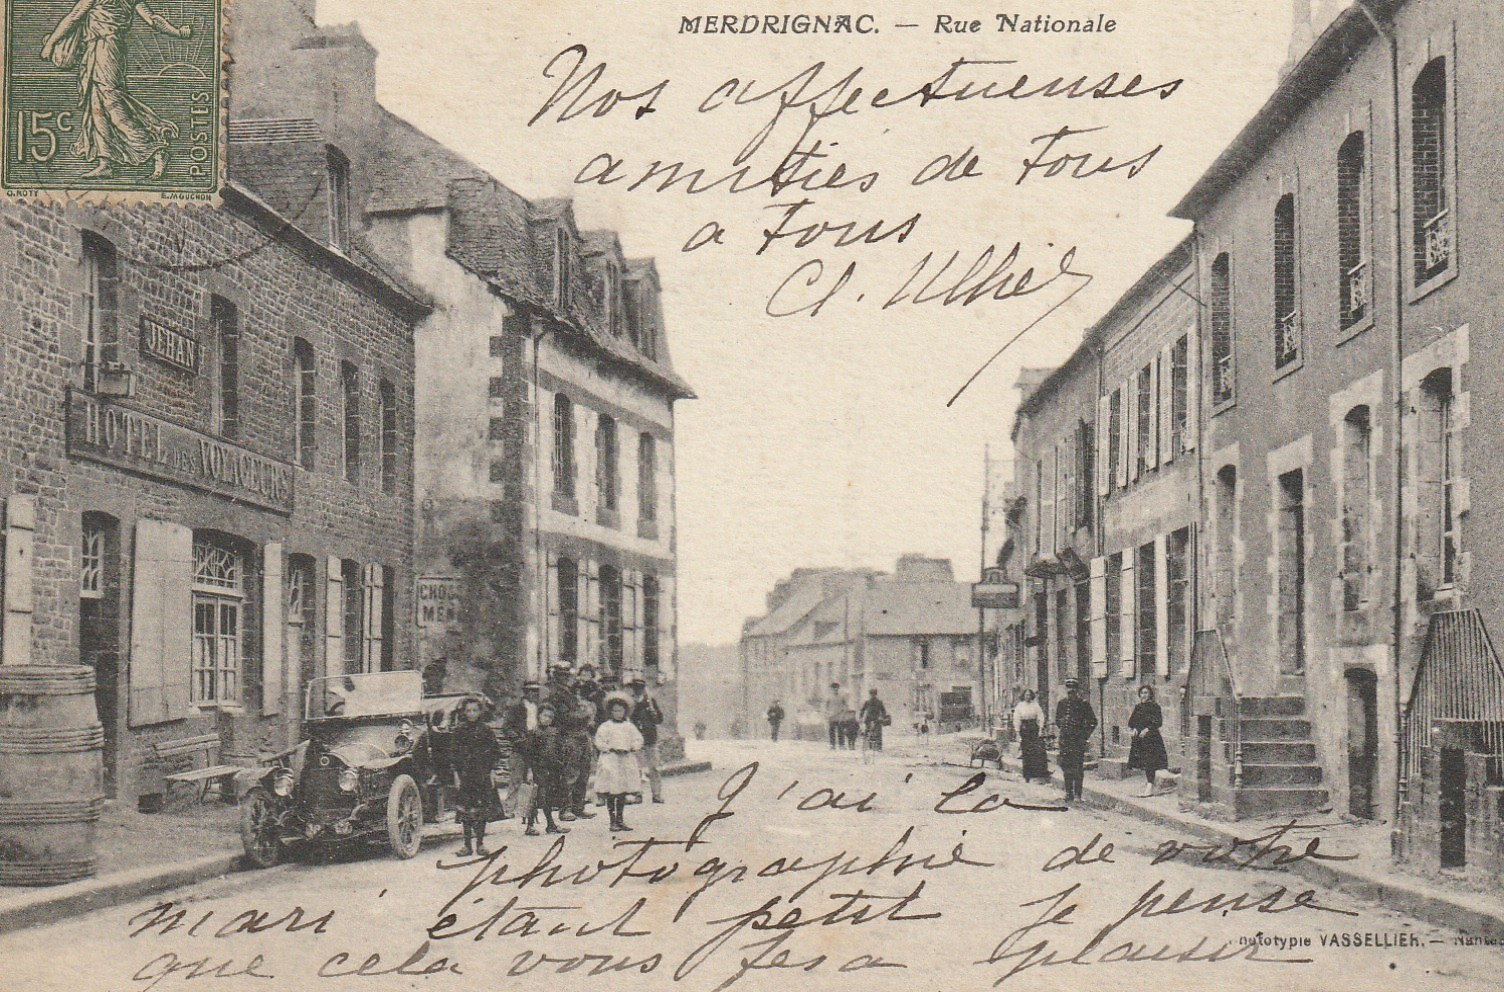 MERDRIGNAC. — Rue Nationale
Nos affectueuses
amitiés de tous
a tous
15c
POSTES
O. ROTY
E. MOUCHON
JEHAN
HOTEL DES VOYAGEURS
MEN
J'ai la
photographie de votre
mari étant petit je pense
que cela vous fera plaisir
VASSELLIER. — Nantes